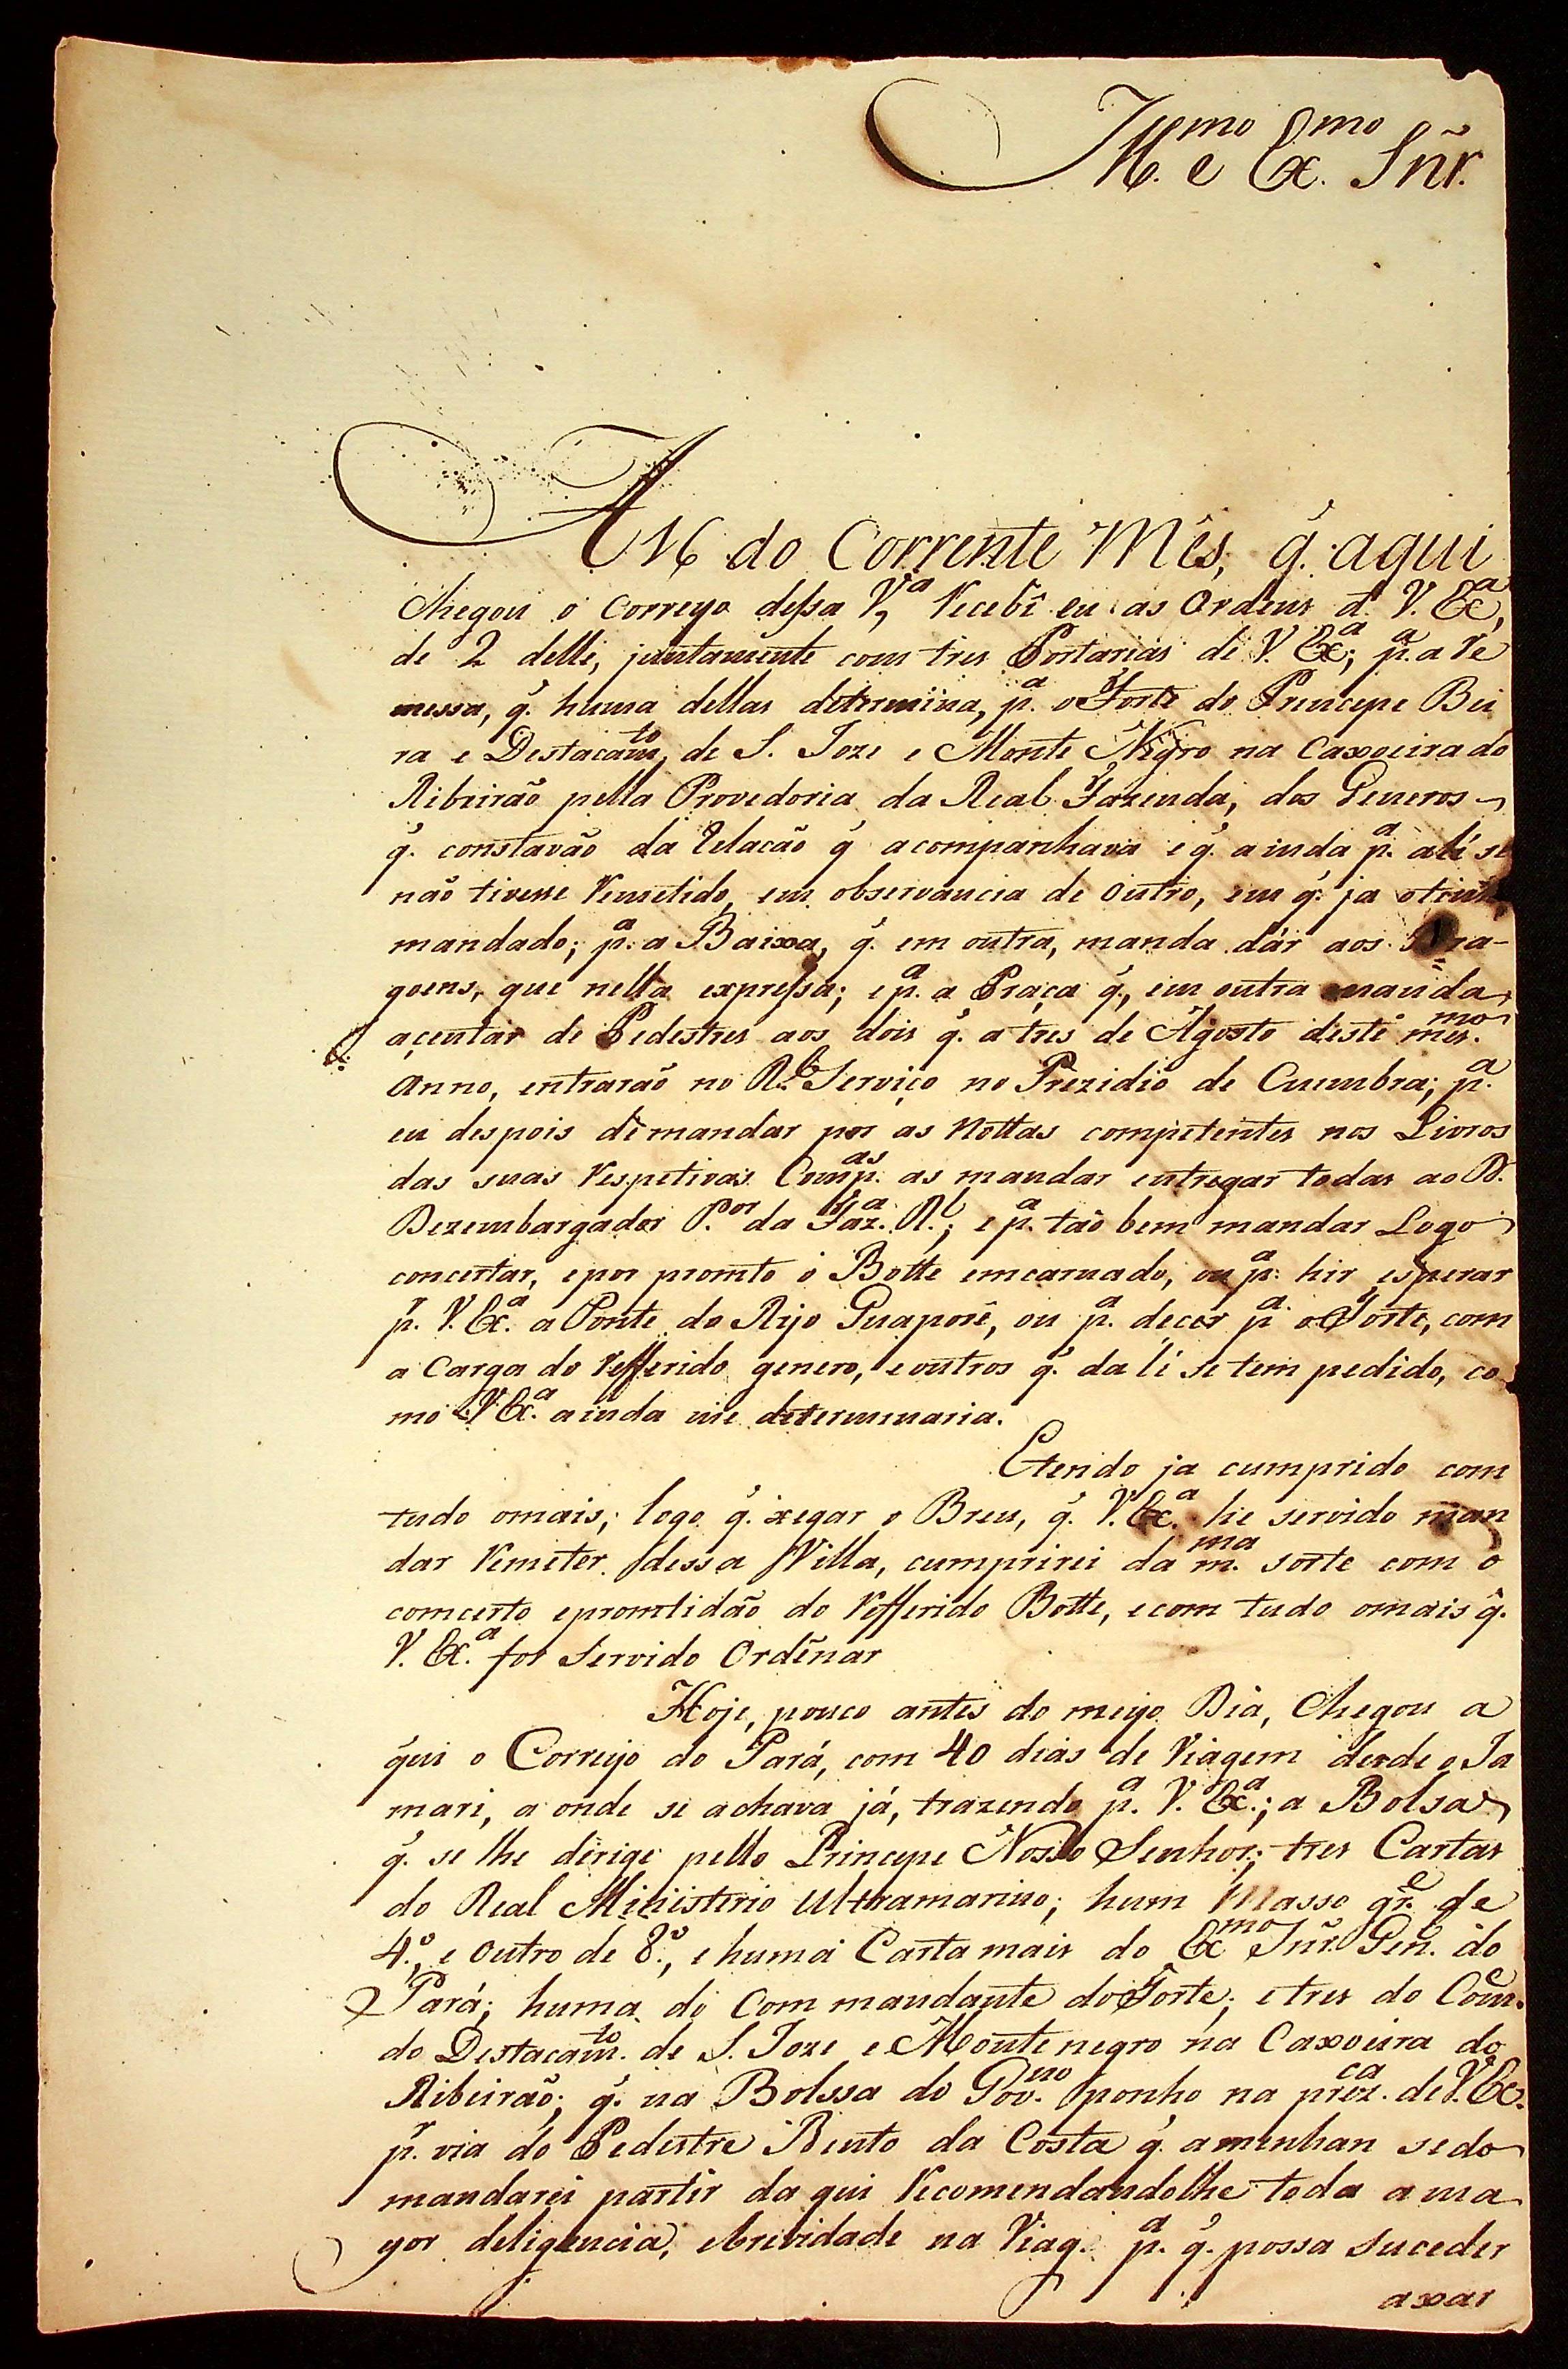 Ill.mo e Ex.mo Snr.
A 16 do Corrente Mês, q. aqui
Chegou o Correyo dessa V.a Recebî eu as Ordens d. V. Ex.a,
de 2 delle, juntamente com tres Portarias de V. Ex.a; p.a a Re
messa, q. huma dellas determina, p.a o Forte do Princepe Bei
ra e Destacam.to de S. Joze e Monte Negro na Caxoeira do
Ribeirão pella Provedoria da Real Fazenda, dos Generos
q. constavão da Relacão q acompanhava e q. ainda p.a alí se
não tivesse Remetido, em observancia de outro, em q. ja o tinha
mandado; p.a a Baixa, q. em outra, manda dár aos Dra-
goens, que nella expressa; e p.a a Praça q., em outra manda
açentar de Pedestres aos dois q. a tres de Agosto deste mes.mo
Anno, entrarão no R.l Serviço no Prezidio de Cuimbra; p.a
eu despois de mandar por as Nottas competentes nos Livros
das suas Respetivas Comp.as as mandar entregar todas ao D.
Dezembargador P.or da Faz.a R.l; e p.a tão bem mandar Logo
concertar, e por promto o Botte emcarnado, ou p.a hir esperar
p.r V. Ex.a a Ponte do Rijo Guaporé, ou p.a decer p.a o Forte, com
a Carga do Refferido genero, e outros q. da li se tem pedido, co
mo V. Ex.a ainda me determinaria.
E tendo ja cumprido com
tudo omais; logo q. xegar o Breu, q. V. Ex.a he servido man
dar Remeter dessa Villa, cumprirei da m.ma sorte com o
comcerto e promtidão do Refferido Botte, e com tudo omais q.
V. Ex.a for Servido Ordênar
Hoje, pouco antes do meyo Dia, Chegou a
qui o Correyo do Pará, com 40 dias de Viagem desde o Ja
mari, a onde se achava já, trazendo p.a V. Ex.a; a Bolsa
q. se lhe dirige pello Principe Nosso Senhor; tres Cartas
do Real Ministerio Ultramarino; hum Masso gr.e de
4.o, e outro de 8.o, e huma Carta mais do Ex.mo Snr. Gen. do
Pará; huma do Commandante do Forte; e tres do Com.e
do Destacam.to de S. Joze e Montenegro na Caxoeira do
Ribeirão; q. na Bolssa do Gov.no ponho na prez.ca de V. Ex.
p.r via do Pedestre Bento da Costa q. amenhan sedo
mandarei partir da qui Recomendandolhe toda a ma
yor deligencia, e brevidade na Viag. p.a q. possa suceder
axar